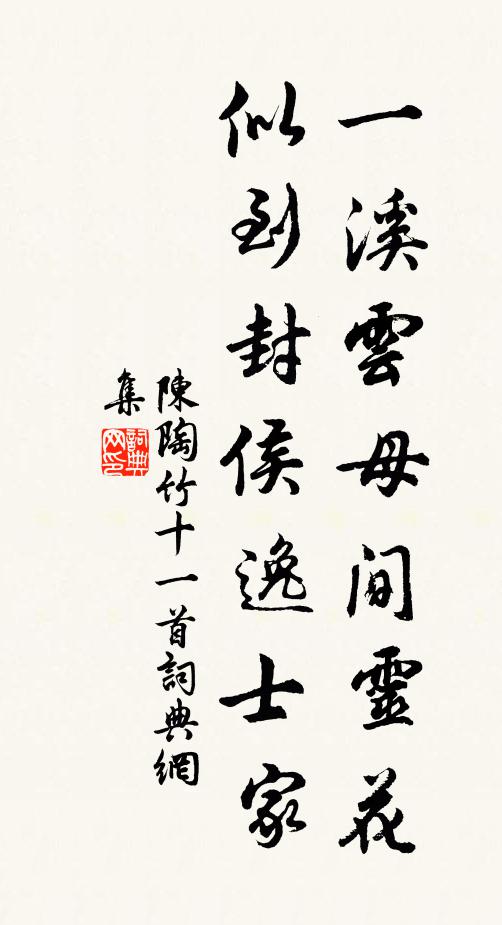 一溪雲母間靈花
似到封侯逸士家
陳陶竹十一首詞典網
集
詞典网印